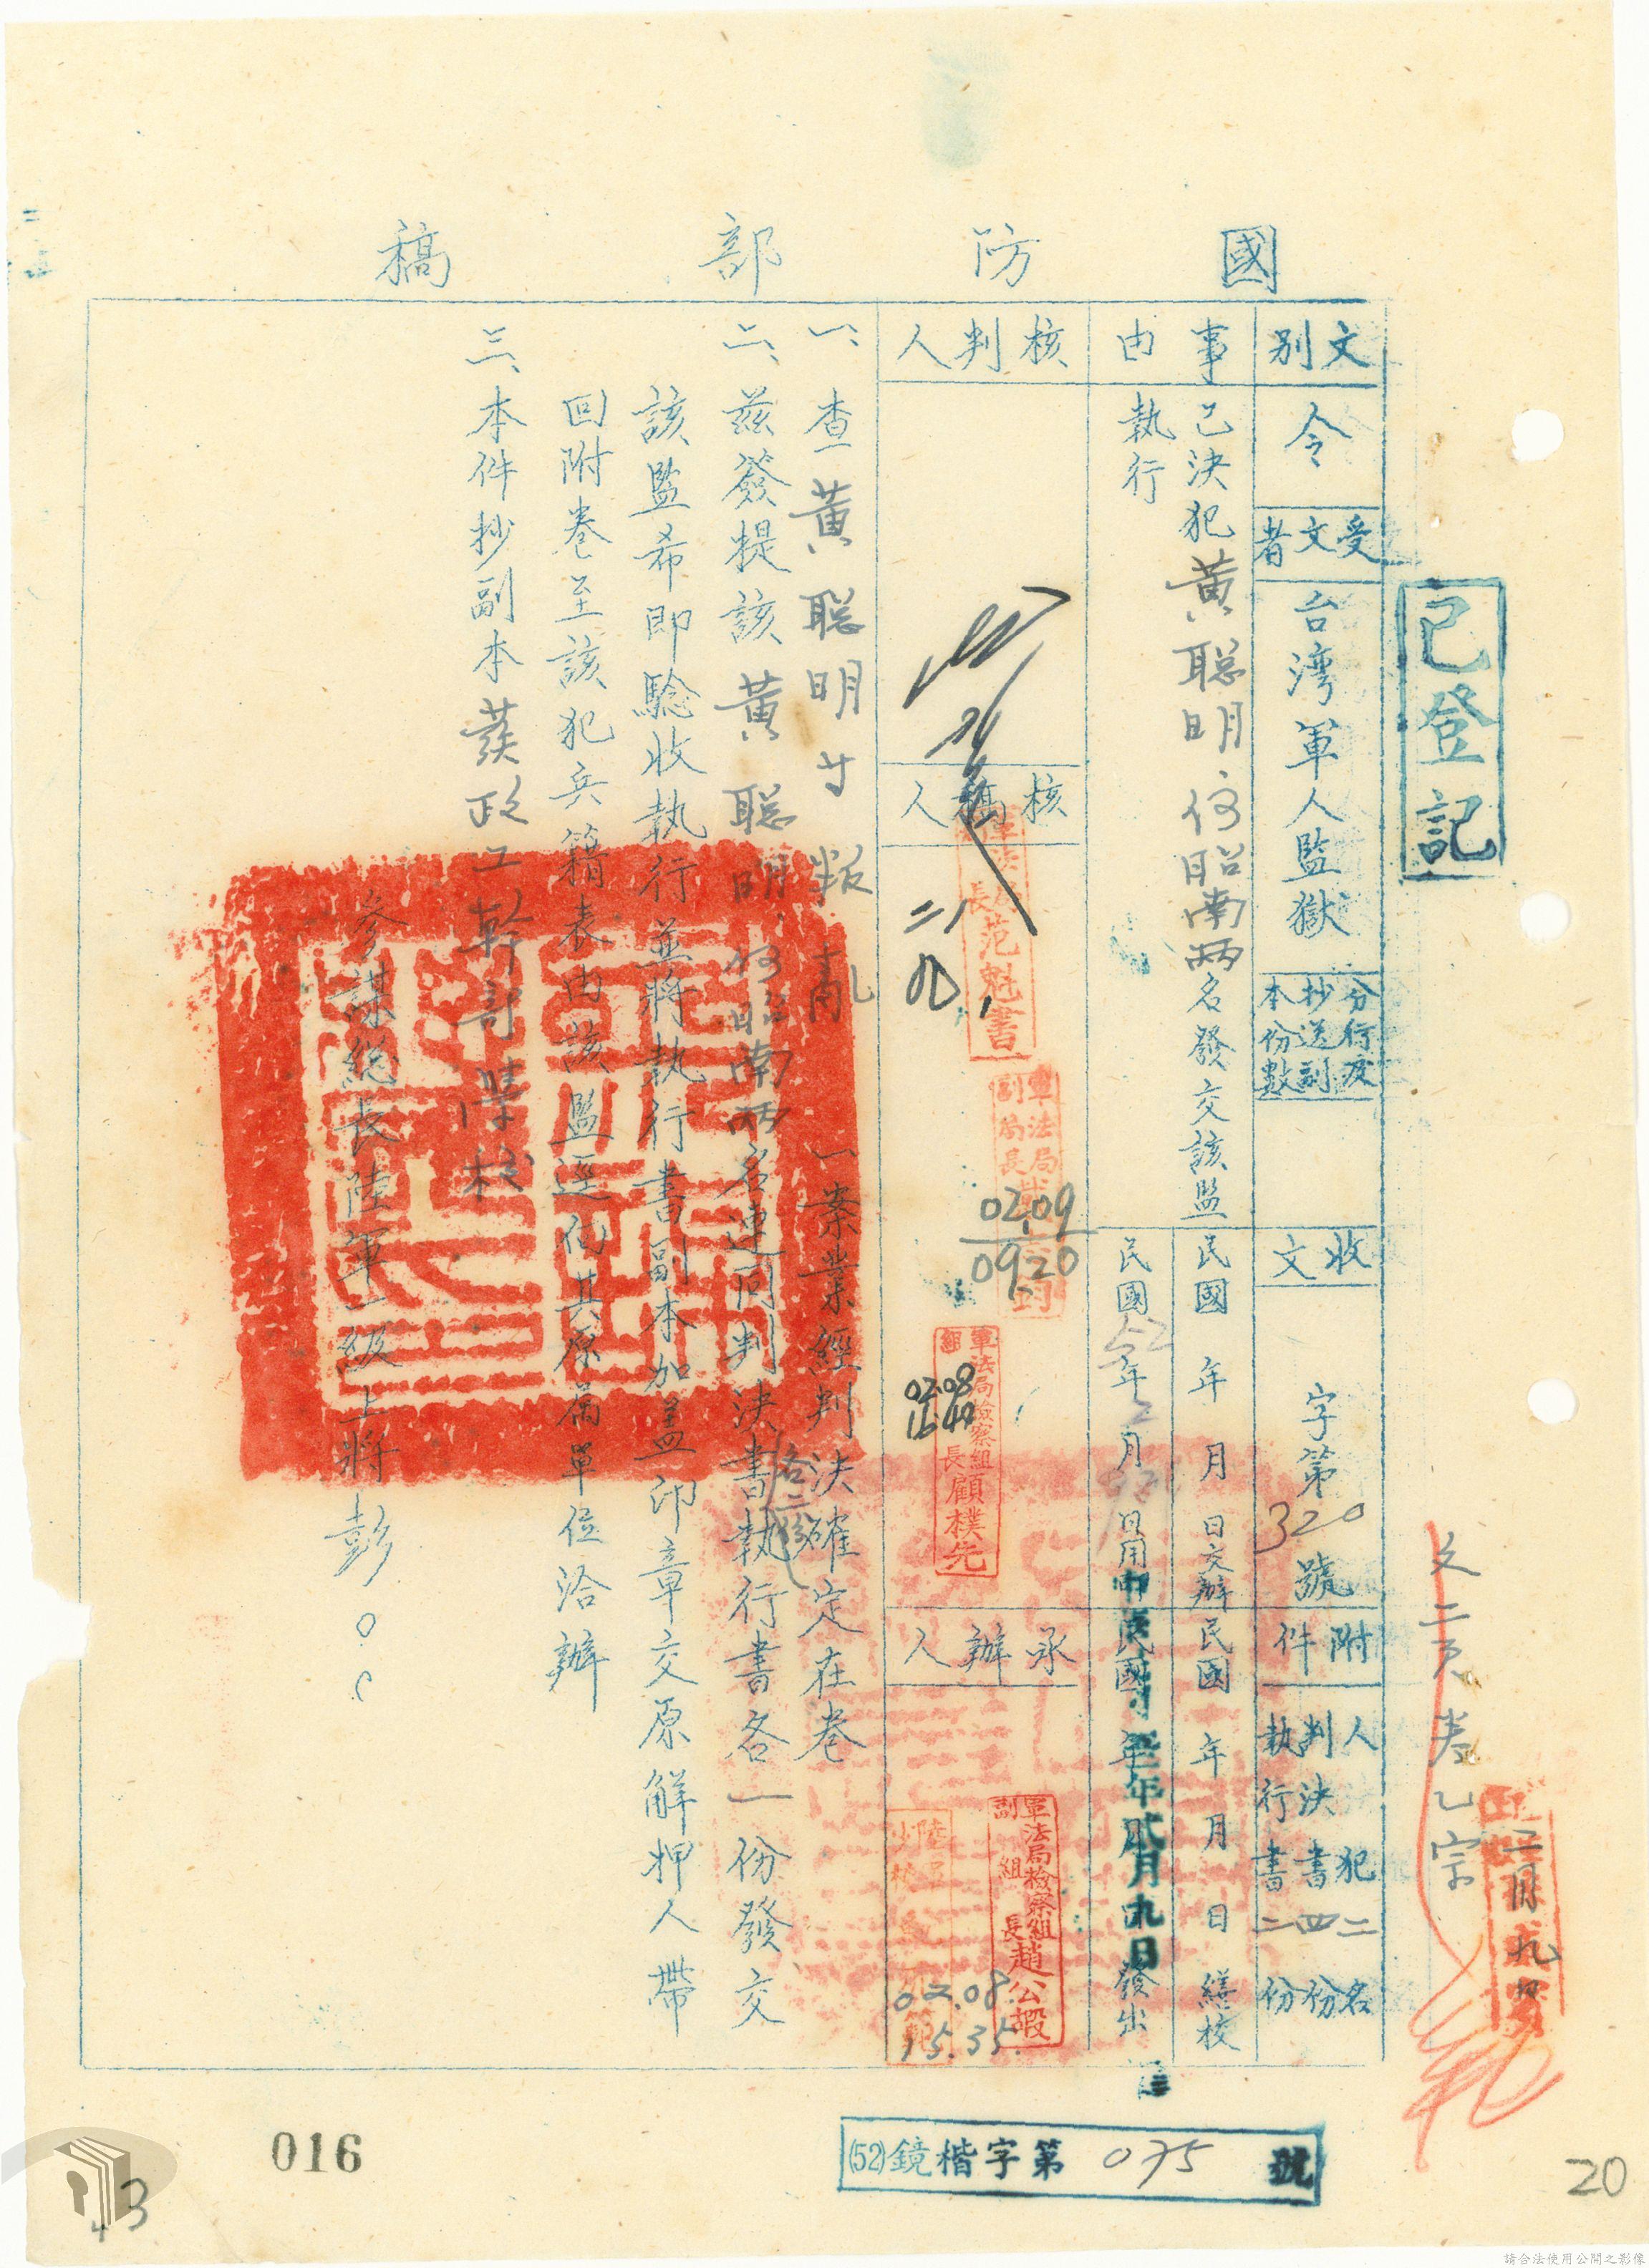 國防部稿
已登記
文別
令
受文者
台湾軍人監獄
分行及抄送副本份數
收文
字第320號
附件
人犯二名
判決書四份
執行書二份
事由
已決犯黃聰明、何昭南兩名發交該監
執行
民國 年 月 日交辦
民國 年 月 日繕校
民國52年2月 日
民國 年 月 日發出
年貳月九日
核判人
核稿人
軍法局長范魁書
軍法局副局長
02.09
09.20
軍法局檢察組組長顧樸先
02.08
16.40
承辦人
軍法局檢察組副組長趙公嘏
02.08
15.35.
一、查黃聰明等叛亂一案業經判決確定在卷
二、茲簽提該黃聰明、何昭南兩名連同判決書執行書各一份發交
各二份
該監希即驗收執行並將執行書副本加蓋印章交原解押人帶
回附卷至該犯兵籍表由該監逕向其原屬單位洽辦
三、本件抄副本發政工幹部學校
參謀總長陸軍一級上將彭○○
二月九
016
(52)鏡楷字第075號
20
請合法使用公開之影像